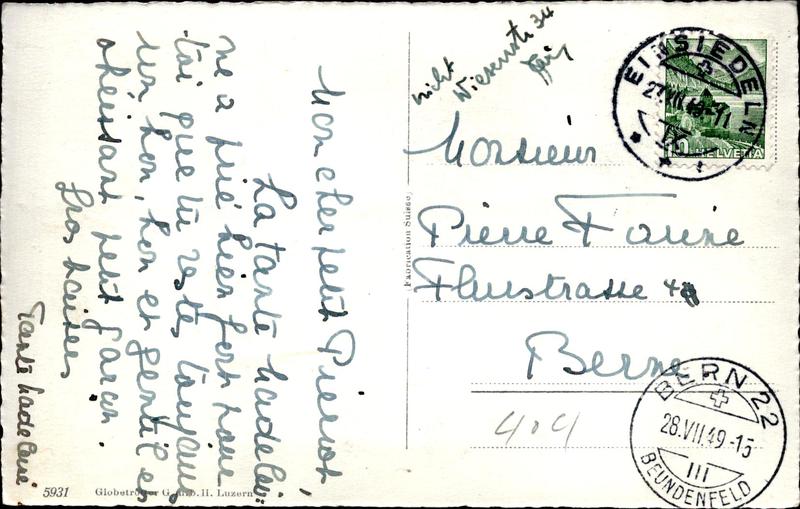 Mon cher petit Pierrot,
La tante Madelei-
ne a prié hier fort pour
toi que tu restes toujours
un bon, bon et gentil et
obéissant petit garçon.
Gros baisers
Tante Madeleine
5931 Globetrotter G.m.b.H. Luzern
Fabrication Suisse
nicht
Wiesenstr 34
EINSIEDELN
27.VII.49-11
10 HELVETIA
Monsieur
Pierre Farine
Flurstrasse
Berne
BERN 22
28.VII.49-15
III
BEUNDENFELD